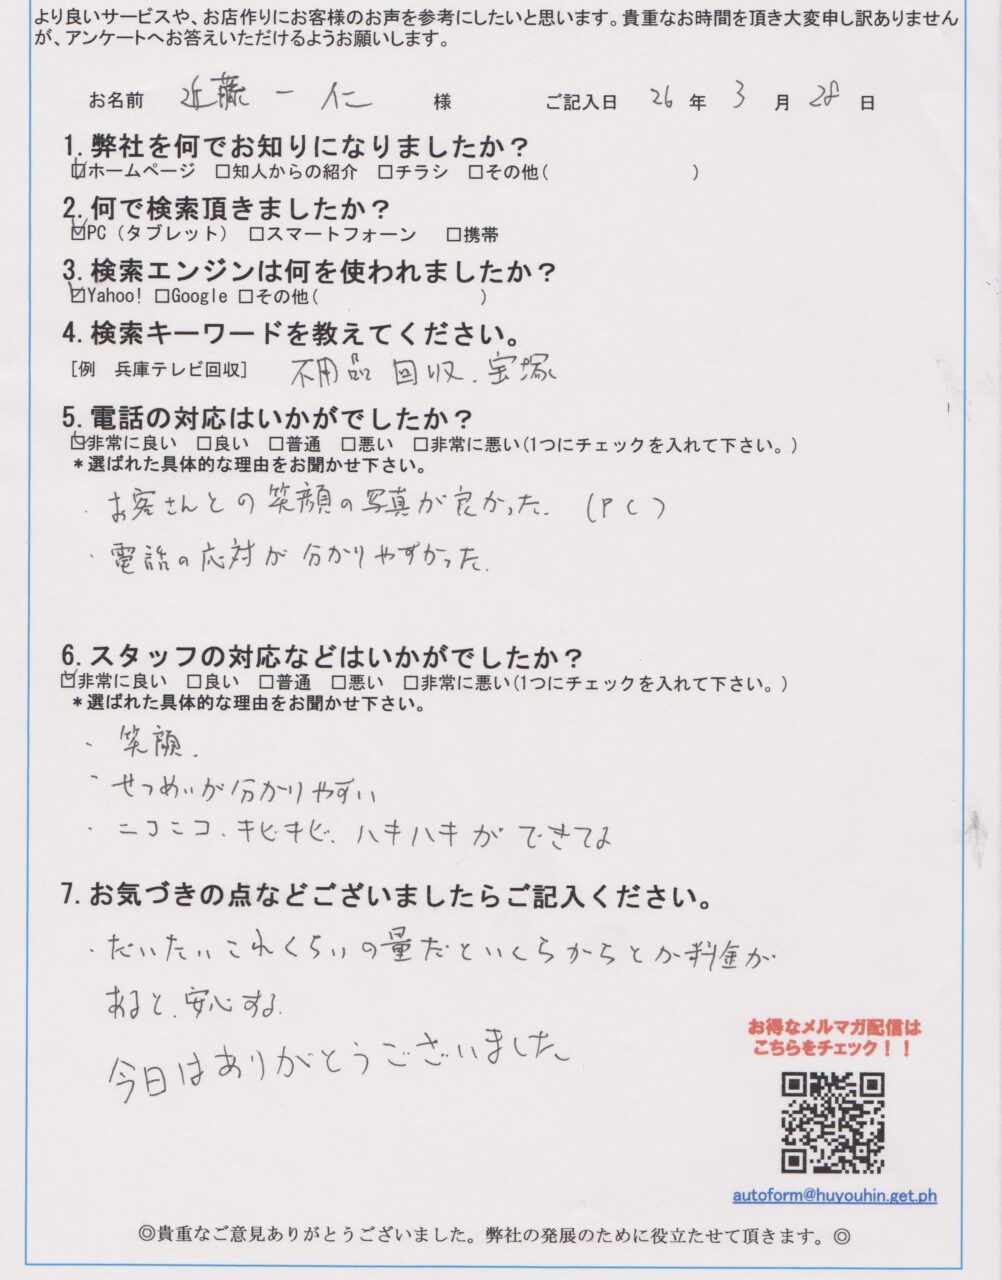 より良いサービスや、お店作りにお客様のお声を参考にしたいと思います。貴重なお時間を頂き大変申し訳ありません
が、アンケートへお答えいただけるようお願いします。
お名前 近藤 一仁 様 ご記入日 26 年 3 月 28 日
1. 弊社を何でお知りになりましたか？
☑ホームページ □知人からの紹介 □チラシ □その他( )
2. 何で検索頂きましたか？
☑PC（タブレット） □スマートフォーン □携帯
3. 検索エンジンは何を使われましたか？
☑Yahoo! □Google □その他( )
4. 検索キーワードを教えてください。
[例 兵庫テレビ回収] 不用品 回収. 宝塚
5. 電話の対応はいかがでしたか？
☑非常に良い □良い □普通 □悪い □非常に悪い(1つにチェックを入れて下さい。)
＊選ばれた具体的な理由をお聞かせ下さい。
・お客さんとの笑顔の写真が良かった. (PC)
・電話の応対が分かりやすかった.
6. スタッフの対応などはいかがでしたか？
☑非常に良い □良い □普通 □悪い □非常に悪い(1つにチェックを入れて下さい。)
＊選ばれた具体的な理由をお聞かせ下さい。
・笑顔.
・せつめいが分かりやすい
・ニコニコ、キビキビ、ハキハキができてる
7. お気づきの点などございましたらご記入ください。
・だいたいこれくらいの量だといくらからとか料金が
あると、安心する.
今日はありがとうございました
お得なメルマガ配信は
こちらをチェック！！
autoform@huyouhin.get.ph
◎貴重なご意見ありがとうございました。弊社の発展のために役立たせて頂きます。◎